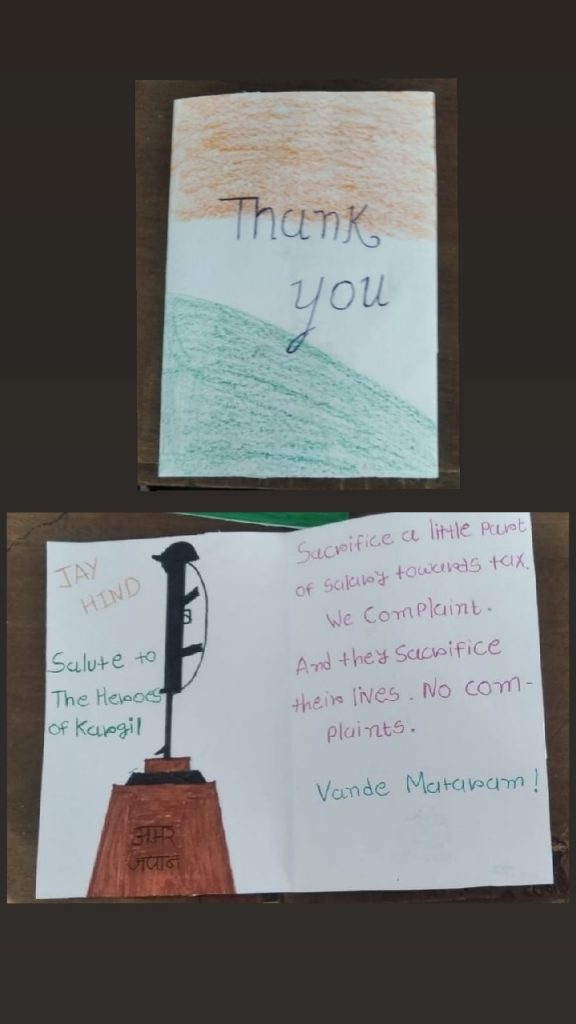 Thank
you
JAY
HIND
Salute to
The Heroes
of Kargil
अमर
जवान
Sacrifice a little Part
of salary towards tax.
We Complaint.
And they Sacrifice
their lives. No com-
plaints.
Vande Mataram!